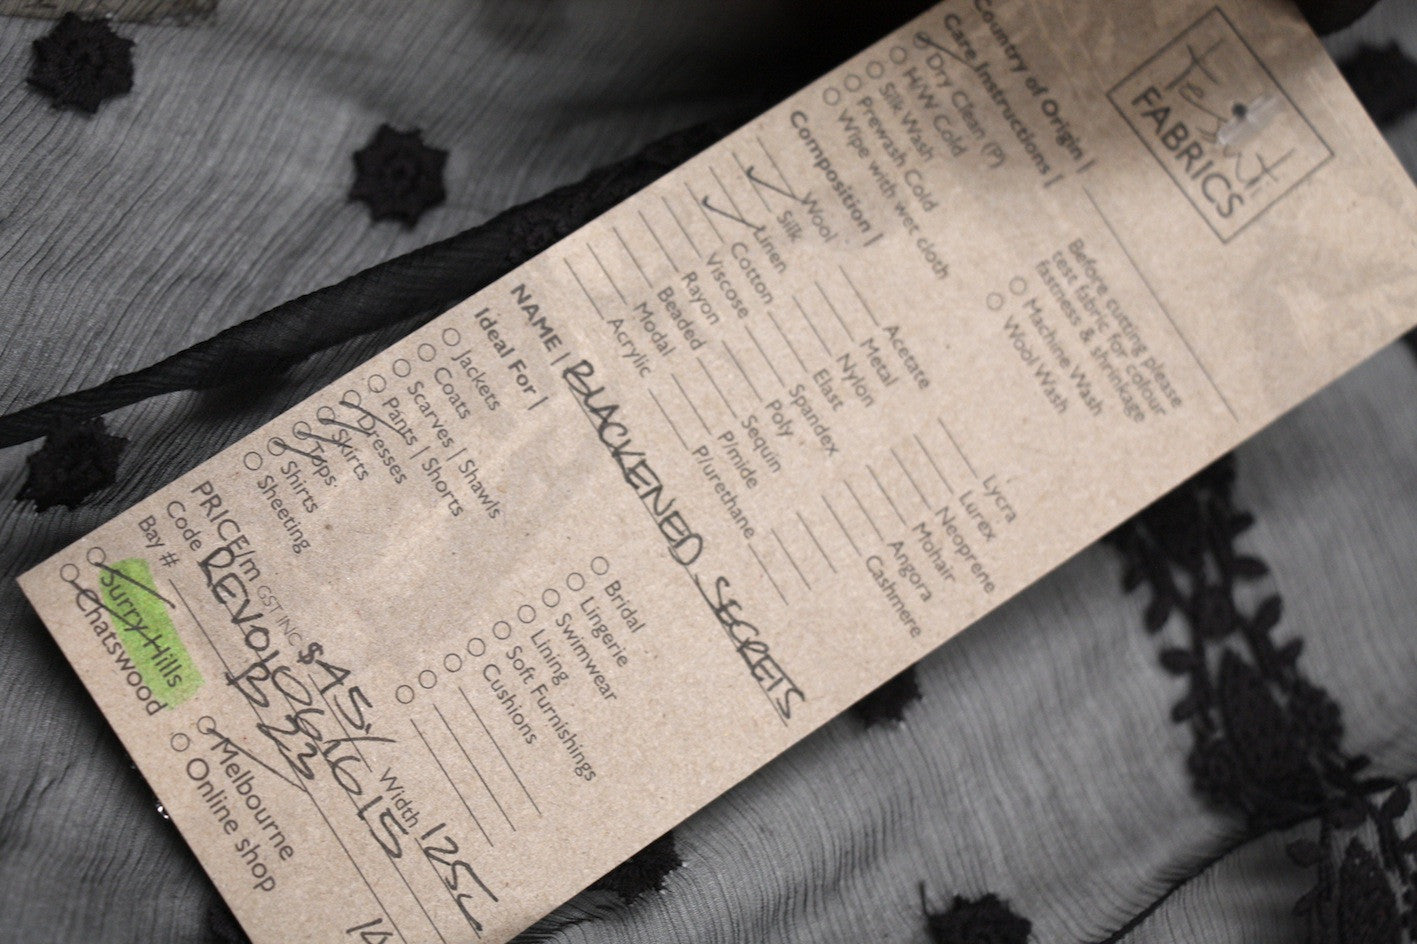 tessuti
FABRICS
Country of Origin |
Care Instructions |
Dry Clean (P)
H/W Cold
Silk Wash
Prewash Cold
Wipe with wet cloth
Before cutting please
test fabric for colour
fastness & shrinkage
Machine Wash
Wool Wash
Composition |
Wool
Silk
Linen
Cotton
Viscose
Rayon
Beaded
Modal
Acrylic
Acetate
Metal
Nylon
Elast
Spandex
Poly
Sequin
P/mide
P/urethane
Lycra
Lurex
Neoprene
Mohair
Angora
Cashmere
NAME | BLACKENED SECRETS
Ideal For |
Jackets
Coats
Scarves | Shawls
Pants | Shorts
Dresses
Skirts
Tops
Shirts
Sheeting
Bridal
Lingerie
Swimwear
Lining
Soft Furnishings
Cushions
PRICE/m GST INC $45/ Width 125c
Code
Bay #
Surry Hills
Chatswood
Melbourne
Online shop